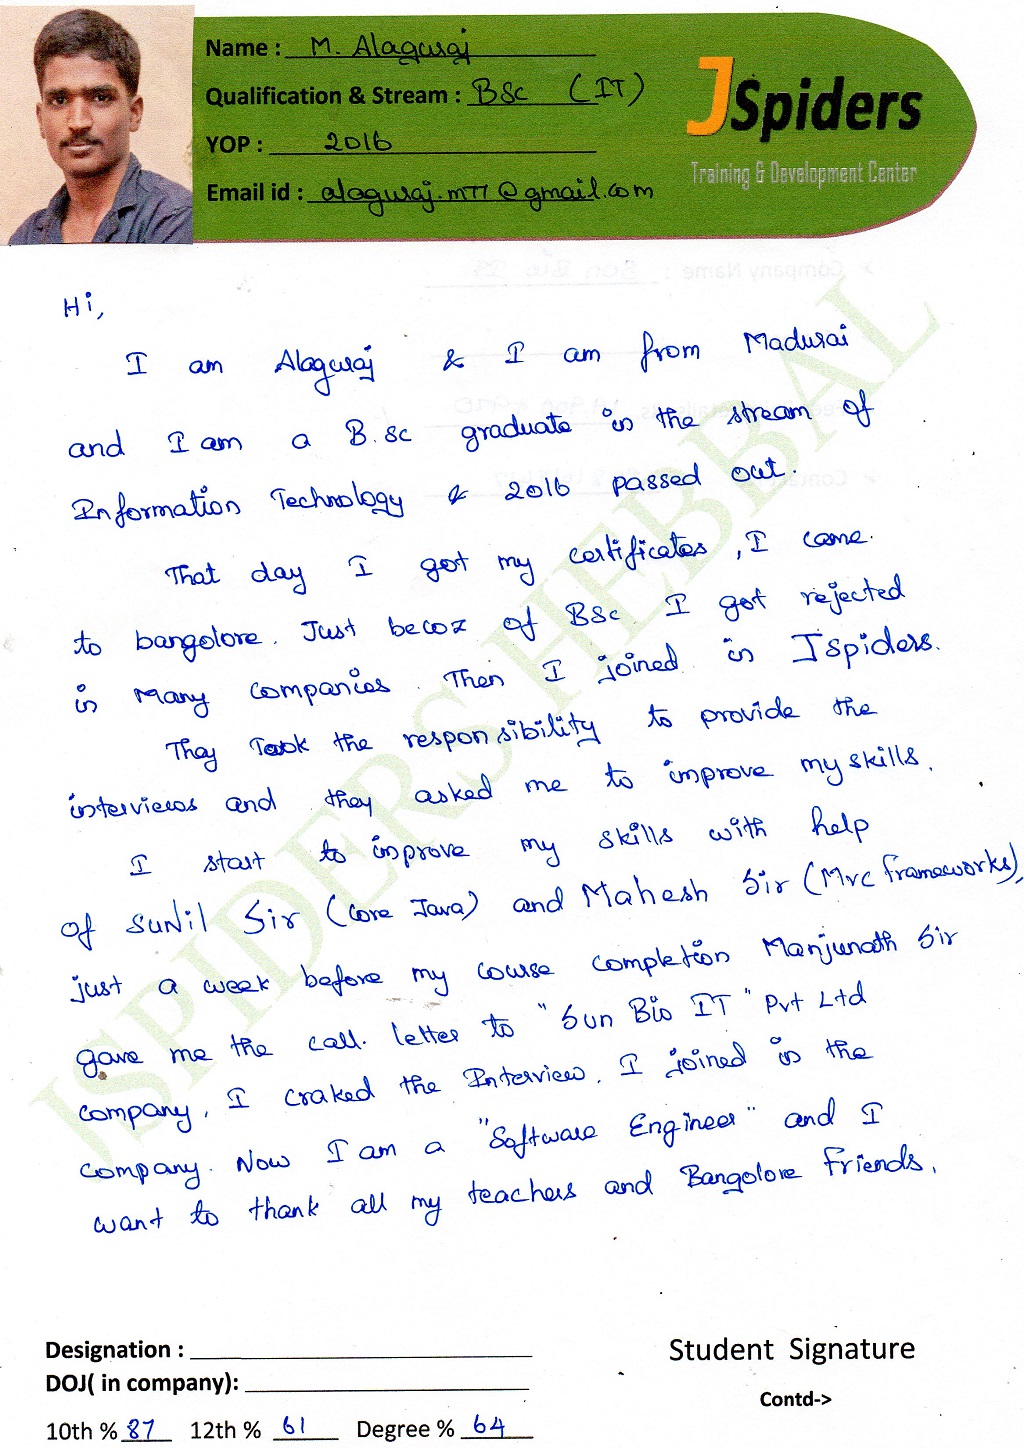 Name : M. Alaguraj
Qualification & Stream : BSc (IT)
YOP : 2016
Email id : alaguraj.m77@gmail.com
JSpiders
Training & Development Center
Hi,
I am Alaguraj & I am from Madurai
and I am a B.sc graduate in the stream of
Information Technology & 2016 passed out.
That day I got my certificates, I came.
to bangolore. Just becoz of BSc I got rejected
in many companies. Then I joined in Jspiders.
They Took the responsibility to provide the
interviews and they asked me to improve my skills.
I start to improve my skills with help
of Sunil Sir (Core Java) and Mahesh Sir (Mvc frameworks),
just a week before my course completion Manjunath Sir
gave me the call letter to "Sun Bio IT" Pvt Ltd
company, I craked the Interview. I joined in the
company. Now I am a "Software Engineer" and I
want to thank all my teachers and Bangolore friends.
JSPIDERS HEBBAL
Designation :
DOJ( in company):
10th % 87 12th % 61 Degree % 64
Student Signature
Contd->